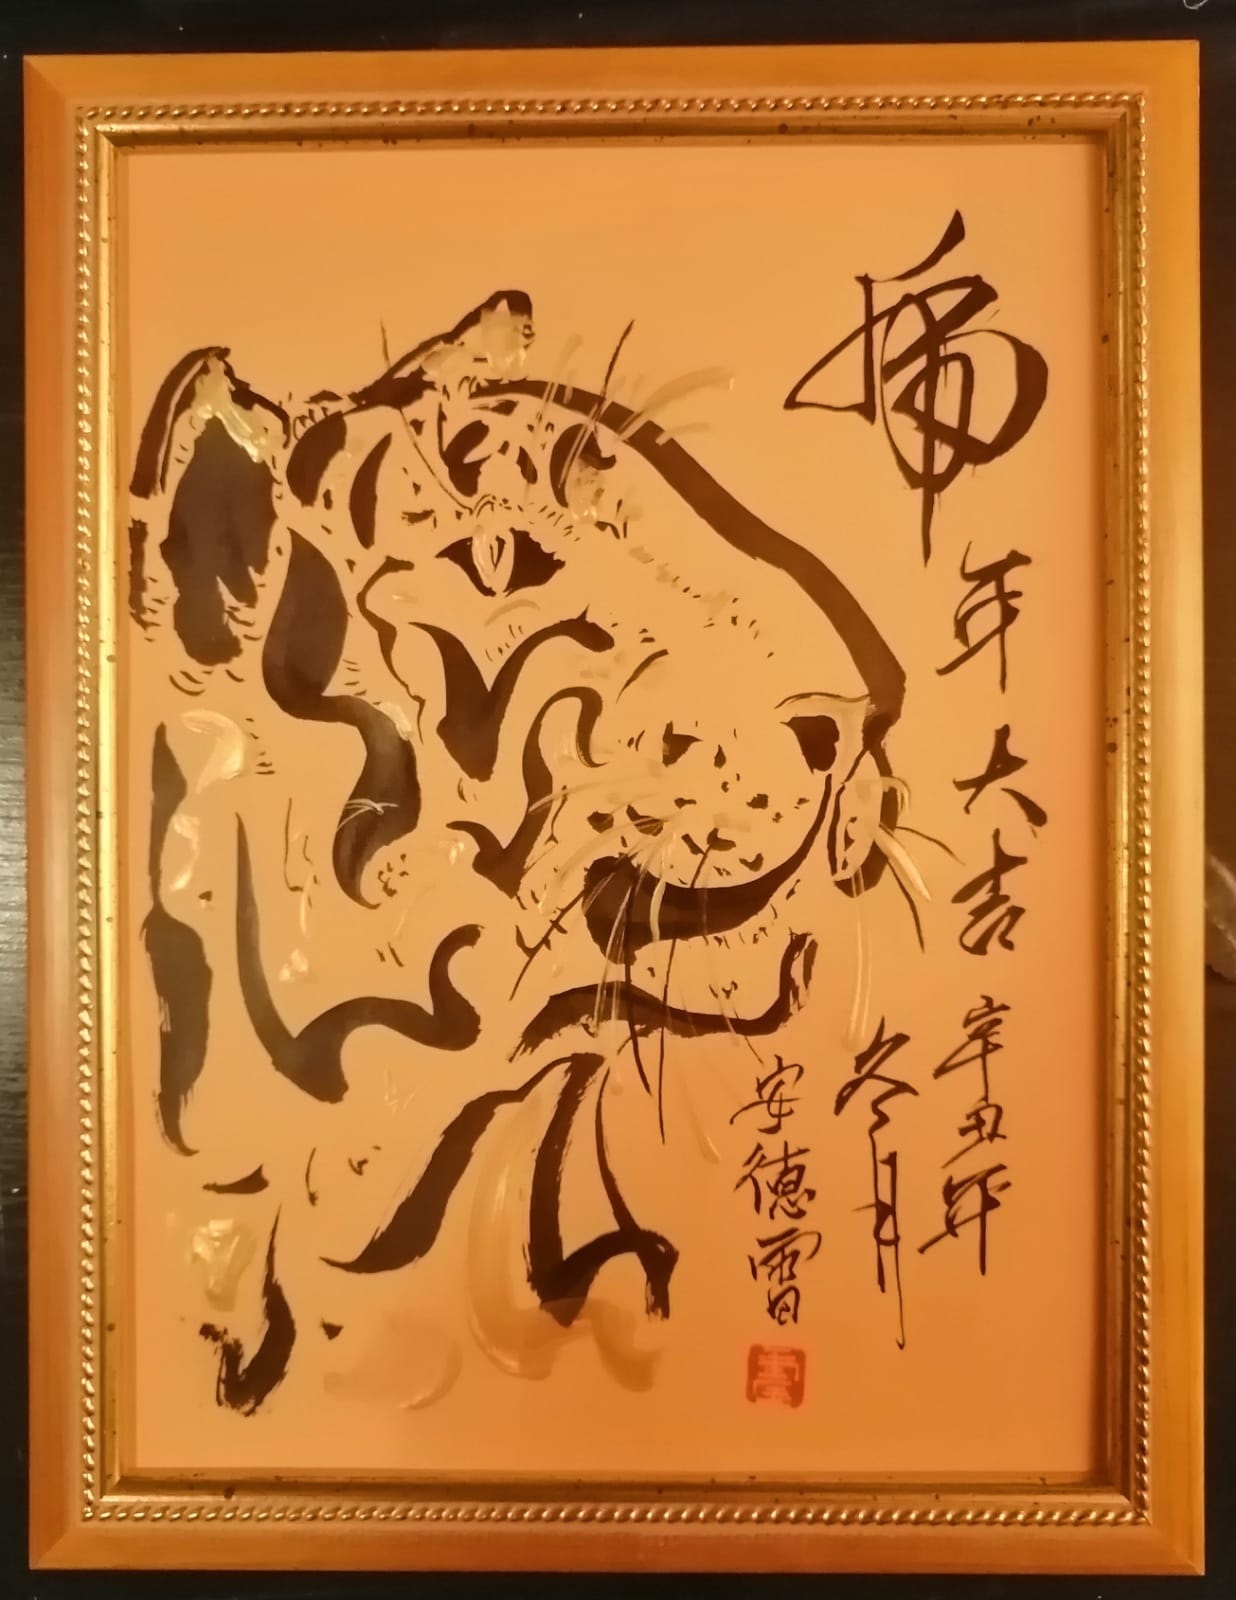 虎年大吉
辛丑年
冬月
安德雷